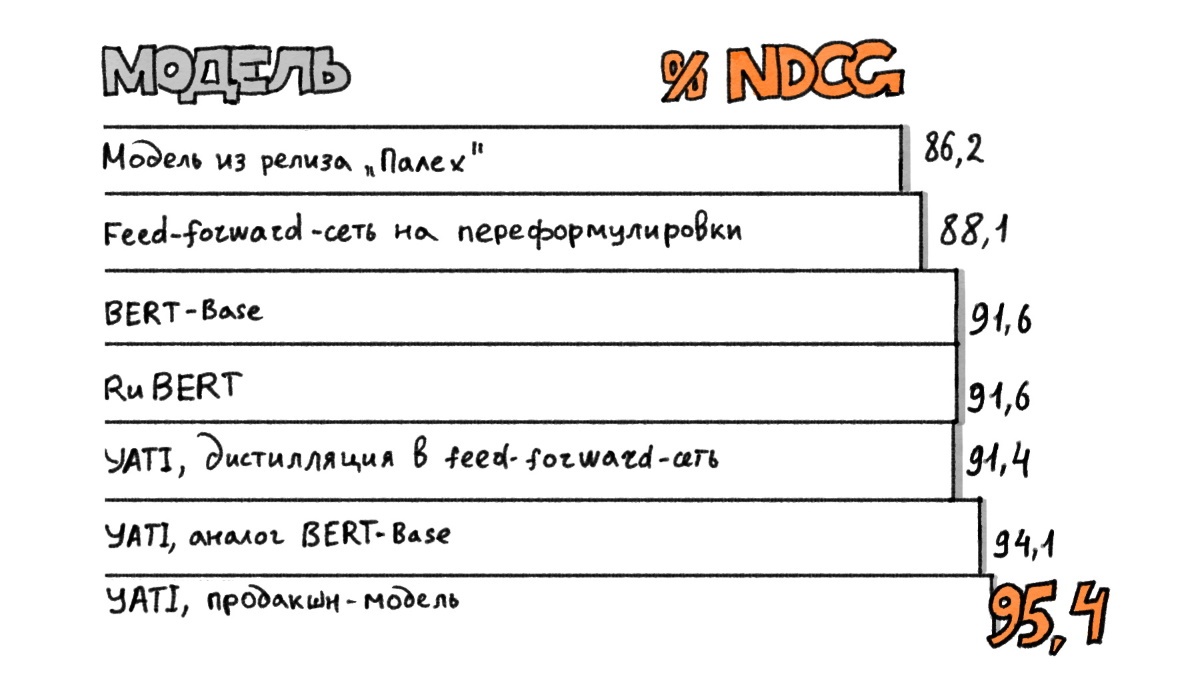 МОДЕЛЬ % NDCG
Модель из релиза „Палех" 86,2
Feed-forward-сеть на переформулировки 88,1
BERT-Base 91,6
RuBERT 91,6
YATI, дистилляция в feed-forward-сеть 91,4
YATI, аналог BERT-Base 94,1
YATI, продакшн-модель 95,4